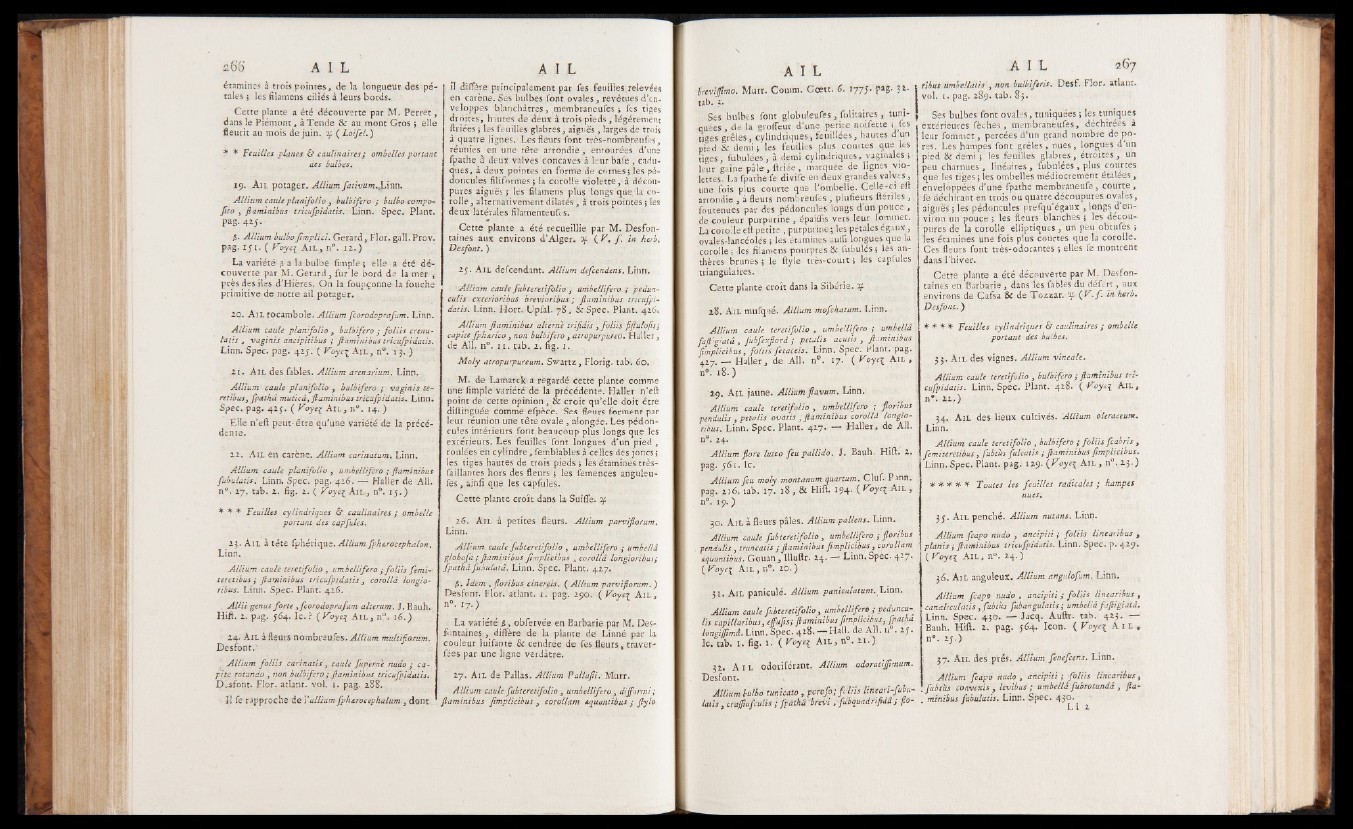 266 AIL
étamines à trois pointes, de la longueur des pé-
tales ; les filamens ciliés à leurs bords.
Cette plante a été découverte par M. Perret,
dans le Piémont, à Tende & au mont Gros ; elle
fleurit au mois de juin. ♃ ( Loisel. )
* * Feuilles planes & caulinaires ; ombelles portant
des bulbes.
19. AIL potager. Allium sativum. Linn.
Allium caule planifolio , bulbifero ; bulbo compo-
sito , staminibus tricuspidatis. Linn. Spec. Plant.
pag. 425.
β. Allium bulbo simplici. Gerard, Flor. gall. Prov.
pag. 151. ( Voyez AIL, n°. 12. )
La variété β a la bulbe simple ; elle a été dé-
couverte par M. Gerard, sur le bord de la mer ,
près des îles d'Hières. On la soupçonne la souche
primitive de notre ail potager.
20. AIL rocambole. Allium scorodoprasum. Linn.
Allium caule planifolio , bulbifero ; foliis crenu-
latis , vaginis ancipitibus ; staminibus tricuspidatis.
Linn. Spec. pag. 425. ( Voyez AIL, n°. 13. )
21. AIL des sables. Allium arenarium. Linn.
Allium caule planifolio , bulbifero ; vaginis te-
retibus, spathâ muticâ, staminibus tricuspidatis. Linn.
Spec. pag. 425. ( Voyez AIL, n°. 14. )
Elle n'est peut-être qu'une variété de la précé-
dente.
22. AIL en carène. Allium carinatum. Linn.
Allium caule planifolio , umbellifero ; staminibus
subulatis. Linn. Spec. pag. 426. — Haller de All.
n°. 27. tab. 2. fig. 2. ( Voyez AIL, n°. 15. )
* * * Feuilles cylindriques & caulinaires ; ombelle
portant des capsules.
23. AIL à tête sphérique. Allium sphærocephalon.
Linn.
Allium caule teretifolio , umbellifero ; foliis semi-
teretibus ; staminibus tricuspidatis , corollâ longio-
ribus. Linn. Spec. Plant. 426.
Allii genus forte , scorodoprasum alterum. J. Bauh.
Hist. 2. pag. 564. Ic. ? ( Voyez AIL, n°. 16. )
24. AIL à fleurs nombreuses. Allium multiflorum.
Desfont.
Allium foliis carinatis , caule supernè nudo ; ca-
pite rotundo , non bulbifero ; staminibus tricuspidatis.
Desfont. Flor. atlant. vol. 1. pag. 288.
Il se rapproche de l'allium sphærocephalum , dont
AIL
il diffère principalement par ses feuilles relevées
en carène. Ses bulbes sont ovales, revêtues d'en-
veloppes blanchâtres, membraneuses ; ses tiges
droites, hautes de deux à trois pieds, légèrement
striées ; les feuilles glabres, aiguës, larges de trois
à quatre lignes. Les fleurs sont très-nombreuses,
réunies en une tête arrondie, entourées d'une
spathe à deux valves concaves à leur base, cadu-
ques, à deux pointes en forme de cornes ; les pé-
doncules filiformes ; la corolle violette, à décou-
pures aiguës ; les filamens plus longs que la co-
rolle, alternativement dilatés, à trois pointes ; les
deux latérales filamenteuses.
Cette plante a été recueillie par M. Desfon-
taines aux environs d'Alger. ♃ ( V. s. in herb.
Desfont. )
25. AIL descendant. Allium descendens. Linn.
Allium caule subteretifolio , umbellifero ; pedun-
culis exterioribus brevioribus ; staminibus tricuspi-
datis. Linn. Hort. Upsal. 78, & Spec. Plant. 426.
Allium staminibus alternè trifidis , foliis fistulosis ;
capite sphærico , non bulbifero , atropurpureo. Haller ,
de All. n°. 11. tab. 2. fig. 1.
Moly atropurpureum. Swartz, Florig. tab. 60.
M. de Lamarck a regardé cette plante comme
une simple variété de la précédente. Haller n'est
point de cette opinion, & croit qu'elle doit être
distinguée comme espèce. Ses fleurs forment par
leur réunion une tête ovale, alongée. Les pédon-
cules intérieurs sont beaucoup plus longs que les
extérieurs. Les feuilles sont longues d'un pied ,
roulées en cylindre, semblables à celles des joncs ;
les tiges hautes de trois pieds ; les étamines très-
saillantes hors des fleurs ; les semences anguleu-
ses, ainsi que les capsules.
Cette plante croît dans la Suisse. ♃
26. AIL à petites fleurs. Allium parviflorum.
Linn.
Allium caule subteretifolio , umbellifero ; umbellâ
globosâ ; staminibus simplicibus , corollâ longioribus ;
spathâ subulatâ. Linn. Spec. Plant. 427.
β. Idem , floribus cinereis. ( Allium parviflorum. )
Desfont. Flor. atlant. 1. pag. 290. ( Voyez AIL,
n°. 17. )
La variété β, observée en Barbarie par M. Des-
fontaines, diffère de la plante de Linné par la
couleur luisante & cendrée de ses fleurs, traver-
sées par une ligne verdâtre.
27. AIL de Pallas. Allium Pallasii. Murr.
Allium caule subteretifolio , umbellifero , difformi ;
staminibus simplicibus , corollam æquantibus ; stylo
AIL
brevissimo. Murr. Comm. Goett. 6. 1775. pag. 32.
tab. 2.
Ses bulbes sont globuleuses, solitaires, tuni-
quées, de la grosseur d'une petite noisette ; ses
tiges grêles, cylindriques, feuillées, hautes d'un
pied & demi ; les feuilles plus courtes que les
tiges, subulées, à demi cylindriques, vaginales ;
leur gaîne pâle, striée, marquée de lignes vio-
lettes. La spathe se divise en deux grandes valves,
une fois plus courte que l'ombelle. Celle-ci est
arrondie, à fleurs nombreuses, plusieurs stériles,
soutenues par des pédoncules longs d'un pouce ,
de couleur purpurine, épaissis vers leur sommet.
La corolle est petite, purpurine ; les pétales égaux,
ovales-lancéolés ; les étamines aussi longues que la
corolle ; les filamens pourpres & subulés ; les an-
thères brunes ; le style très-court ; les capsules
triangulaires.
Cette plante croît dans la Sibérie. ♃
28. AIL musqué. Allium moschatum. Linn.
Allium caule teretifolio , umbellifero ; umbellâ
fastigiatâ , subsexflorâ ; petalis acutis , staminibus
simplicibus, foliis setaceis. Linn. Spec. Plant. pag.
427. — Haller, de All. n°. 17. ( Voyez AIL,
n°. 18. )
29. AIL jaune. Allium flavum. Linn.
Allium caule teretifolio , umbellifero ; floribus
pendulis , petalis ovatis , staminibus corollâ longio-
ribus. Linn. Spec. Plant. 427. — Haller, de All.
n°. 24.
Allium flore luteo seu pallido. J. Bauh. Hist. 2.
pag. 561. Ic.
Allium seu moly montanum quartum. Clus. Pann.
pag. 216. tab. 17. 18, & Hist. 194. ( Voyez AIL,
n°. 19. )
30. AIL à fleurs pâles. Allium pallens. Linn.
Allium caule subteretifolio , umbellifero ; floribus
pendulis , truncatis ; staminibus simplicibus , corollam
æquantibus. Gouan, Illustr. 24. — Linn. Spec. 427.
( Voyez AIL, n°. 20. )
31. AIL paniculé. Allium paniculatum. Linn.
Allium caule subteretifolio , umbellifero ; peduncu-
lis capillaribus, effusis ; staminibus simplicibus, spathâ
longissimâ. Linn. Spec. 428. — Hall. de All. n°. 25.
Ic. tab. 1. fig. 1. ( Voyez AIL, n°. 21. )
32. AIL odoriférant. Allium odoratissimum.
Desfont.
Allium bulbo tunicato , poroso ; foliis lineari-subu-
latis , crassiusculis ; spathâ brevi , subquadrifidâ ; flo-
AIL 267
ribus umbellatis , non bulbiferis. Desf. Flor. atlant.
vol. 1. pag. 289. tab. 83.
Ses bulbes sont ovales, tuniquées ; les tuniques
extérieures sèches, membraneuses, déchirées à
leur sommet, percées d'un grand nombre de po-
res. Les hampes sont grêles, nues, longues d'un
pied & demi ; les feuilles glabres, étroites, un
peu charnues, linéaires, subulées, plus courtes
que les tiges ; les ombelles médiocrement étalées,
enveloppées d'une spathe membraneuse, courte,
se déchirant en trois ou quatre découpures ovales,
aiguës ; les pédoncules presqu'égaux, longs d'en-
viron un pouce ; les fleurs blanches ; les décou-
pures de la corolle elliptiques, un peu obtuses ;
les étamines une fois plus courtes que la corolle.
Ces fleurs sont très-odorantes ; elles se montrent
dans l'hiver.
Cette plante a été découverte par M. Desfon-
taines en Barbarie, dans les sables du désert, aux
environs de Cafsa & de Tozzar. ♃ ( V. s. in herb.
Desfont. )
* * * * Feuilles cylindriques & caulinaires ; ombelle
portant des bulbes.
33. AIL des vignes. Allium vineale.
Allium caule teretifolio , bulbifero ; staminibus tri-
cuspidatis. Linn. Spec. Plant. 428. ( Voyez AIL,
n°. 22. )
34. AIL des lieux cultivés. Allium oleraceum.
Linn.
Allium caule teretifolio , bulbifero ; foliis scabris ,
semiteretibus , subtùs sulcatis ; staminibus simplicibus.
Linn. Spec. Plant. pag. 129. ( Voyez AIL, n°. 23. )
* * * * * Toutes les feuilles radicales ; hampes
nues.
35. AIL penché. Allium nutans. Linn.
Allium scapo nudo , ancipiti ; foliis linearibus ,
planis ; staminibus tricuspidatis. Linn. Spec. p. 429.
( Voyez AIL, n°. 24. )
36. AIL anguleux. Allium angulosum. Linn.
Allium scapo nudo , ancipiti ; foliis linearibus ,
canaliculatis , subtùs subangulatis ; umbellâ fastigiatâ.
Linn. Spec. 430. — Jacq. Austr. tab. 423. —
Bauh. Hist. 2. pag. 564. Icon. ( Voyez AIL,
n°. 25. )
37. AIL des prés. Allium senescens. Linn.
Allium scapo nudo , ancipiti ; foliis linearibus,
subtùs convexis , levibus ; umbellâ subrotundâ , sta-
minibus subulatis. Linn. Spec. 430.
L l 2